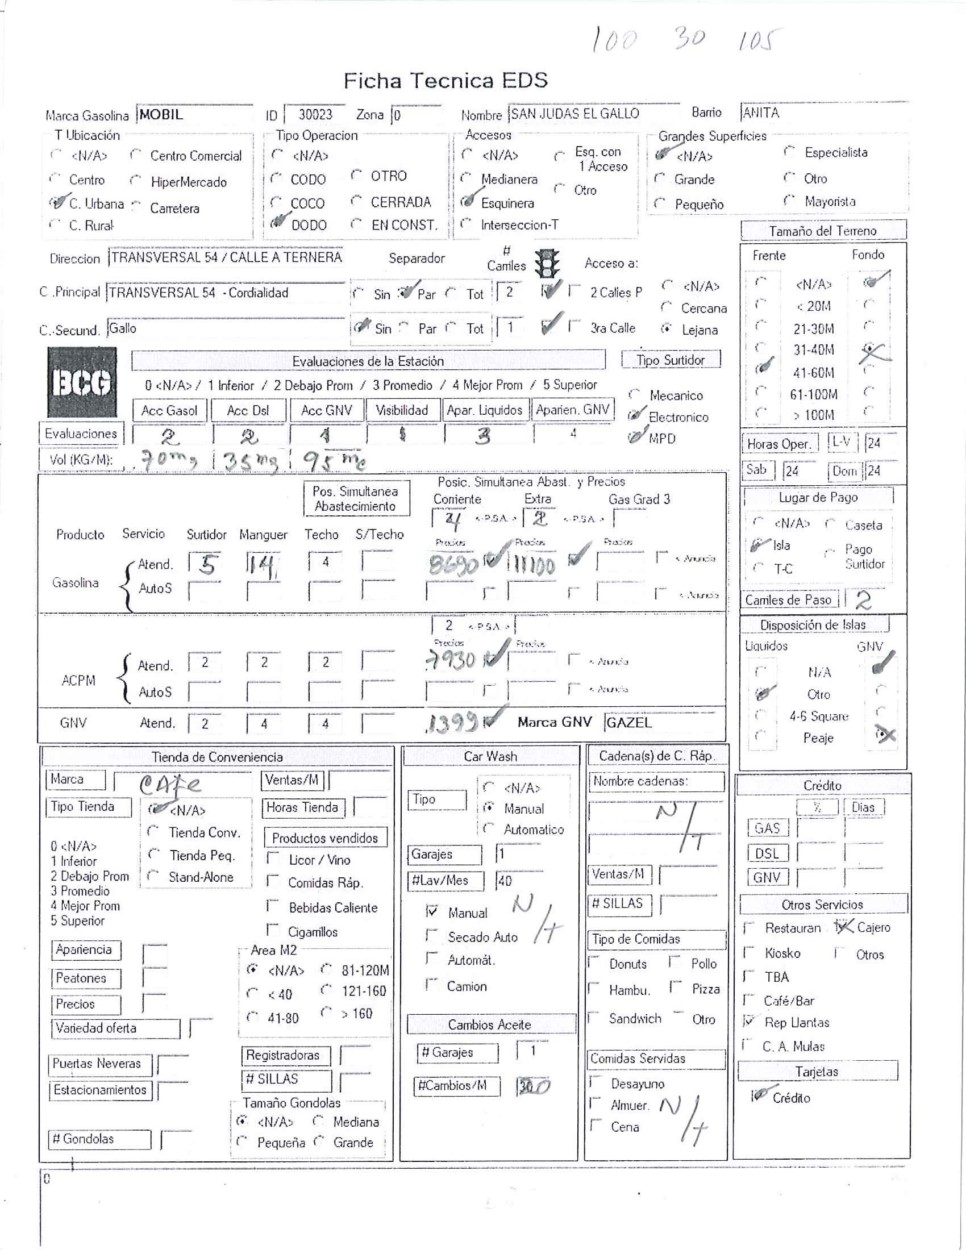 100 30 105
Ficha Tecnica EDS
Marca Gasolina MOBIL ID 30023 Zona 0 Nombre SAN JUDAS EL GALLO Barrio ANITA
T Ubicación Tipo Operacion Accesos Grandes Superficies
<N/A> Centro Comercial <N/A> <N/A> Esq. con 1 Acceso <N/A> Especialista
Centro HiperMercado CODO OTRO Medianera Otro Grande Otro
C. Urbana Carretera COCO CERRADA Esquinera Pequeño Mayorista
C. Rural DODO EN CONST. Interseccion-T
Tamaño del Terreno
Direccion TRANSVERSAL 54 / CALLE A TERNERA Separador # Carriles Acceso a:
C .Principal TRANSVERSAL 54 - Cordialidad Sin Par Tot 2 2 Calles P <N/A>
Cercana
C.-Secund. Gallo Sin Par Tot 1 3ra Calle Lejana
Frente Fondo
<N/A>
< 20M
21-30M
31-40M
41-60M
61-100M
> 100M
BCG
Evaluaciones de la Estación Tipo Surtidor
0 <N/A> / 1 Inferior / 2 Debajo Prom / 3 Promedio / 4 Mejor Prom / 5 Superior
Mecanico
Electronico
MPD
Acc Gasol Acc Dsl Acc GNV Visibilidad Apar. Liquidos Aparien. GNV
Evaluaciones 2 2 1 1 3 4
Vol (KG/M): 70mg 35mg 95
Horas Oper. L-V 24
Sab 24 Dom 24
Lugar de Pago
<N/A> Caseta
Isla Pago Surtidor
T-C
Carriles de Paso 2
Pos. Simultanea Abastecimiento
Posic. Simultanea Abast. y Precios
Corriente Extra Gas Grad 3
4 <-P.S.A.-> 2 <-P.S.A.->
Producto Servicio Surtidor Manguer Techo S/Techo Precios Precios Precios
Gasolina Atend. 5 14 4 8690 11100 <- Anuncio
AutoS <- Anuncio
2 <-P.S.A.->
Precios Precios
ACPM Atend. 2 2 2 7930 <- Anuncio
AutoS <- Anuncio
GNV Atend. 2 4 4 1399 Marca GNV GAZEL
Disposición de Islas
Liquidos GNV
N/A
Otro
4-6 Square
Peaje
Tienda de Conveniencia
Marca CAFE Ventas/M
Tipo Tienda <N/A> Horas Tienda
Tienda Conv. Productos vendidos
0 <N/A>
1 Inferior Tienda Peq. Licor / Vino
2 Debajo Prom Stand-Alone Comidas Ráp.
3 Promedio
4 Mejor Prom Bebidas Caliente
5 Superior Cigarrillos
Apariencia Area M2
Peatones <N/A> 81-120M
Precios < 40 121-160
Variedad oferta 41-80 > 160
Puertas Neveras Registradoras
Estacionamientos # SILLAS
Tamaño Gondolas
<N/A> Mediana
# Gondolas Pequeña Grande
Car Wash
Tipo <N/A>
Manual
Automatico
Garajes 1
#Lav/Mes 40
Manual N/A
Secado Auto
Automát.
Camion
Cambios Aceite
# Garajes 1
#Cambios/M
Cadena(s) de C. Ráp.
Nombre cadenas:
N/A
Ventas/M
# SILLAS
Tipo de Comidas
Donuts Pollo
Hambu. Pizza
Sandwich Otro
Comidas Servidas
Desayuno
Almuer. N/A
Cena
Crédito
% Días
GAS
DSL
GNV
Otros Servicios
Restauran Cajero
Kiosko Otros
TBA
Café/Bar
Rep Llantas
C. A. Mulas
Tarjetas
Crédito
0